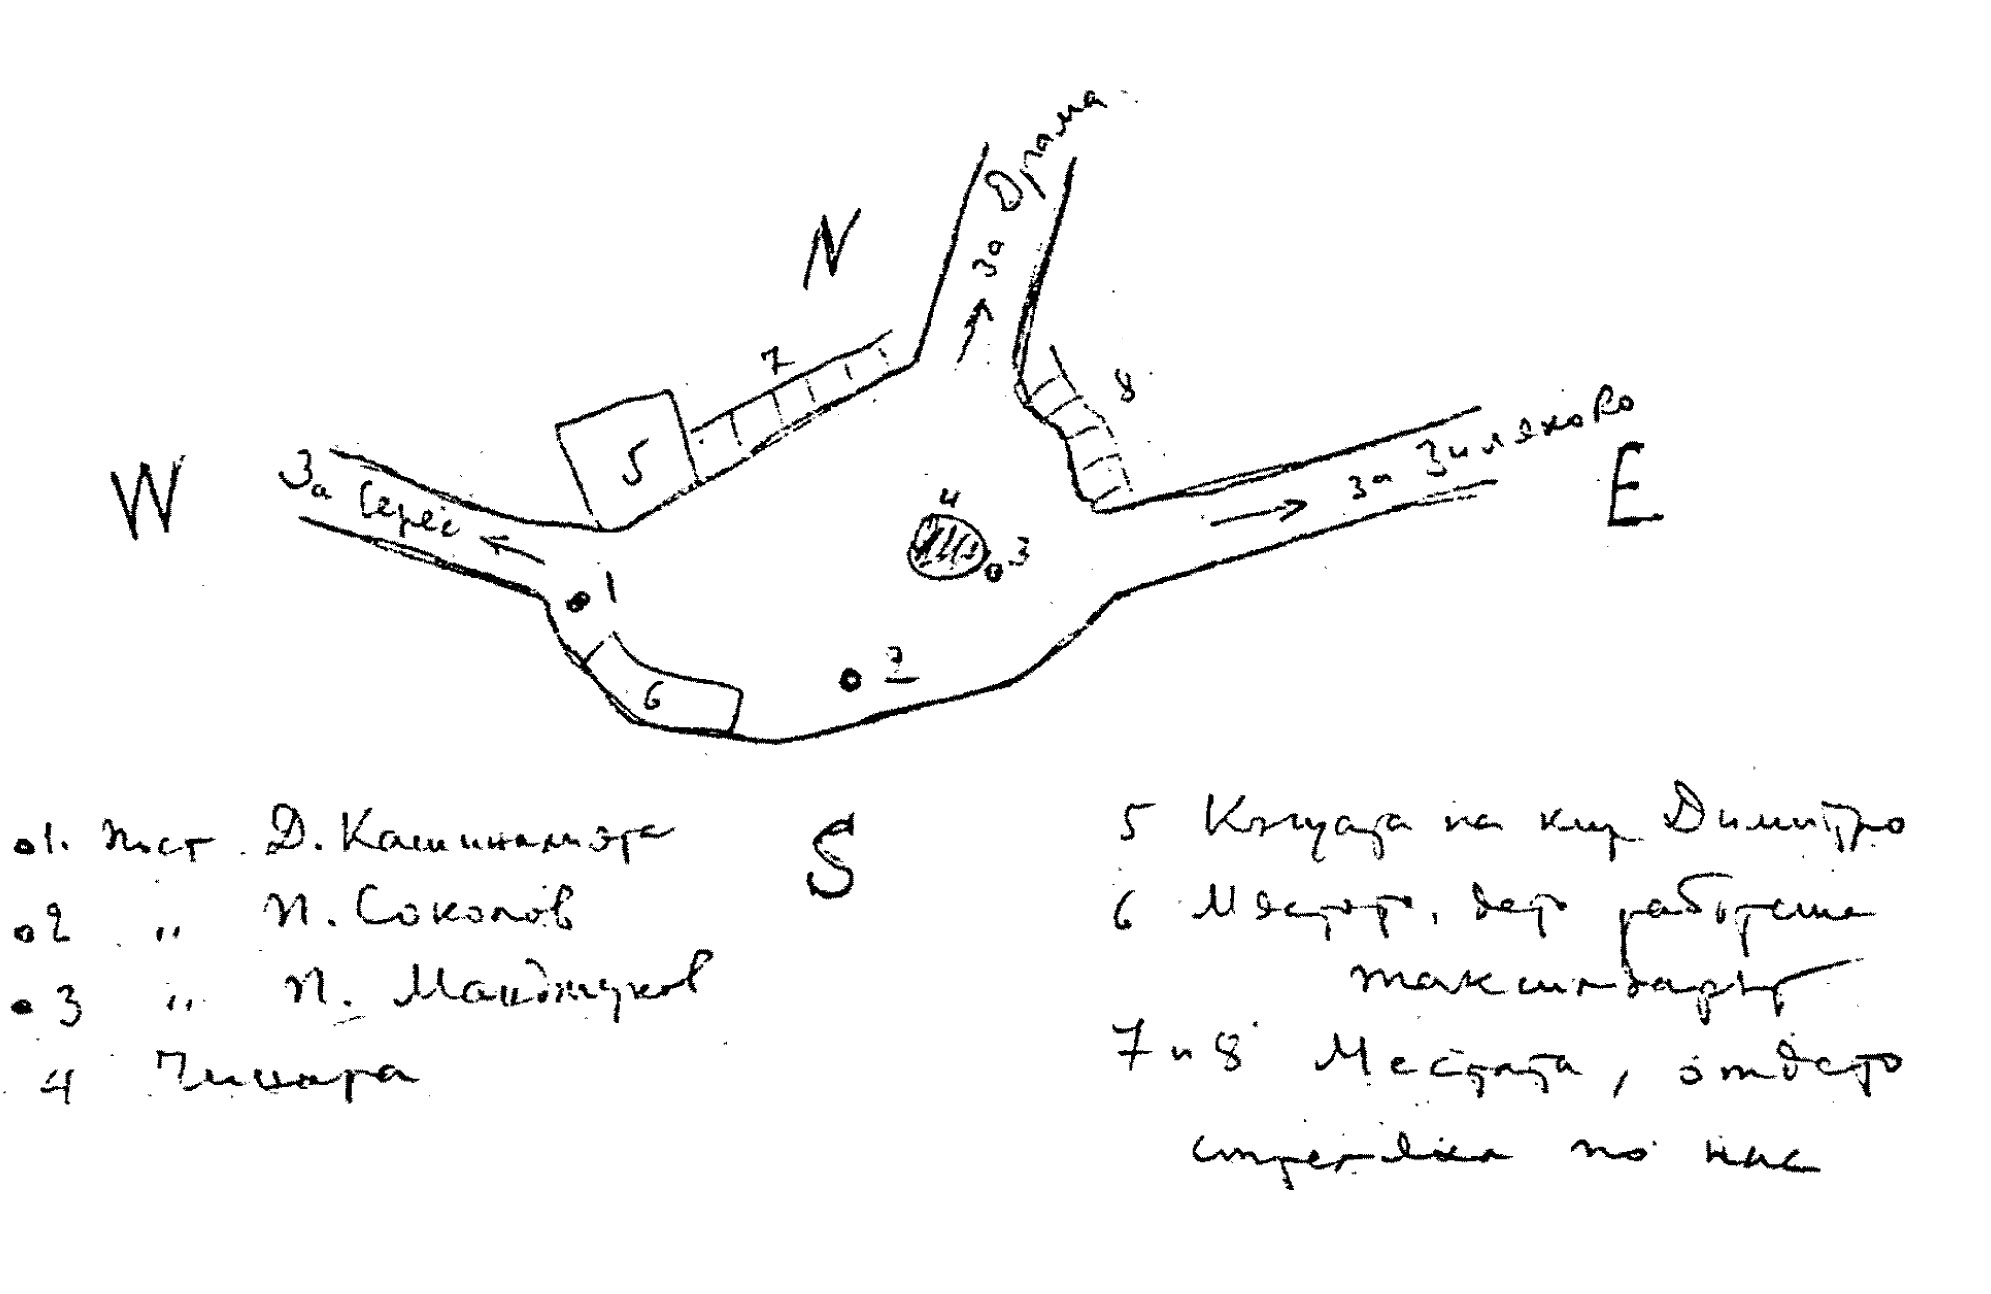 За Драма
N
7
8
За Серес
5
За Зиляхово
W
E
4
3
1
2
6
1. Пост Д. Кашиналията
2 „ П. Соколов
3 „ П. Манджуков
4 Чинара
S
5 Къщата на кир Димитро
6 Мястото, дето работеше
таксилдарът
7 и 8 Местата, отдето
стреляха по нас